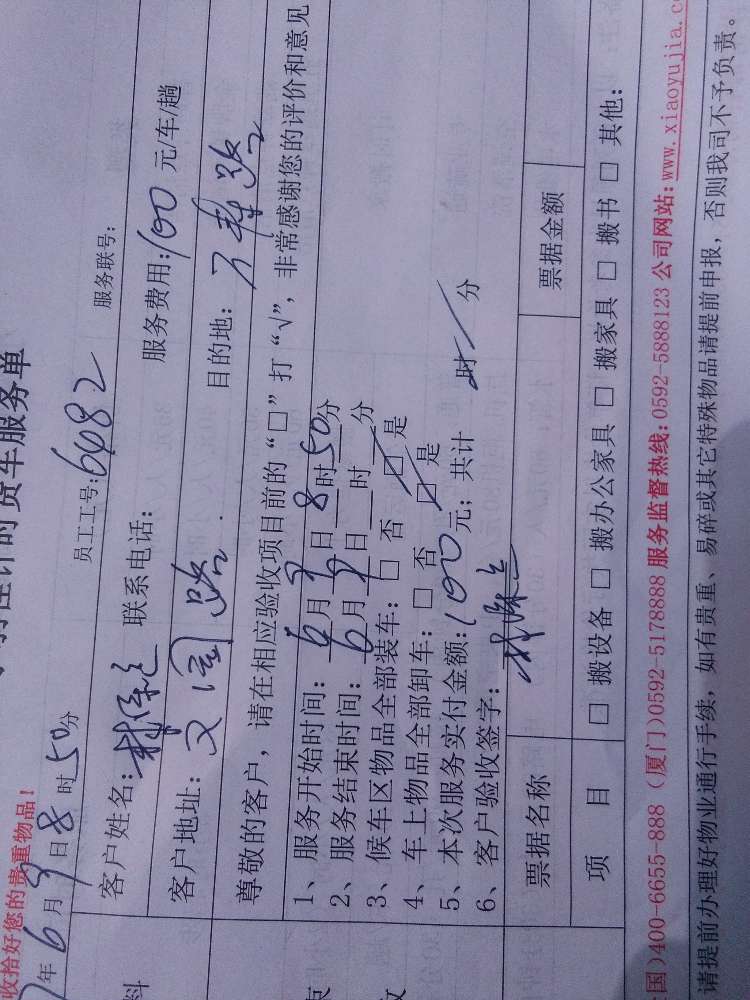 收拾好您的贵重物品!
的货车服务单
年6月9日8时50分
员工工号:6482
服务联号:
客户姓名:
联系电话:
服务费用:100 元/车/趟
客户地址:文园路
目的地:
尊敬的客户，请在相应验收项目前的“□”打“√”，非常感谢您的评价和意见
1、服务开始时间:6月9日8时50分
2、服务结束时间:6月9日 时 分
3、候车区物品全部装车: □ 否 □ 是
4、车上物品全部卸车: □ 否 □ 是
5、本次服务实付金额:100元; 共计 时 分
6、客户验收签字:
票据名称
票据金额
项 目
□ 搬设备 □ 搬办公家具 □ 搬家具 □ 搬书 □ 其他:
国)400-6655-888 (厦门)0592-5178888 服务监督热线:0592-5888123 公司网站:www.xiaoyujia.c
请提前办理好物业通行手续，如有贵重、易碎或其它特殊物品请提前申报，否则我司不予负责。